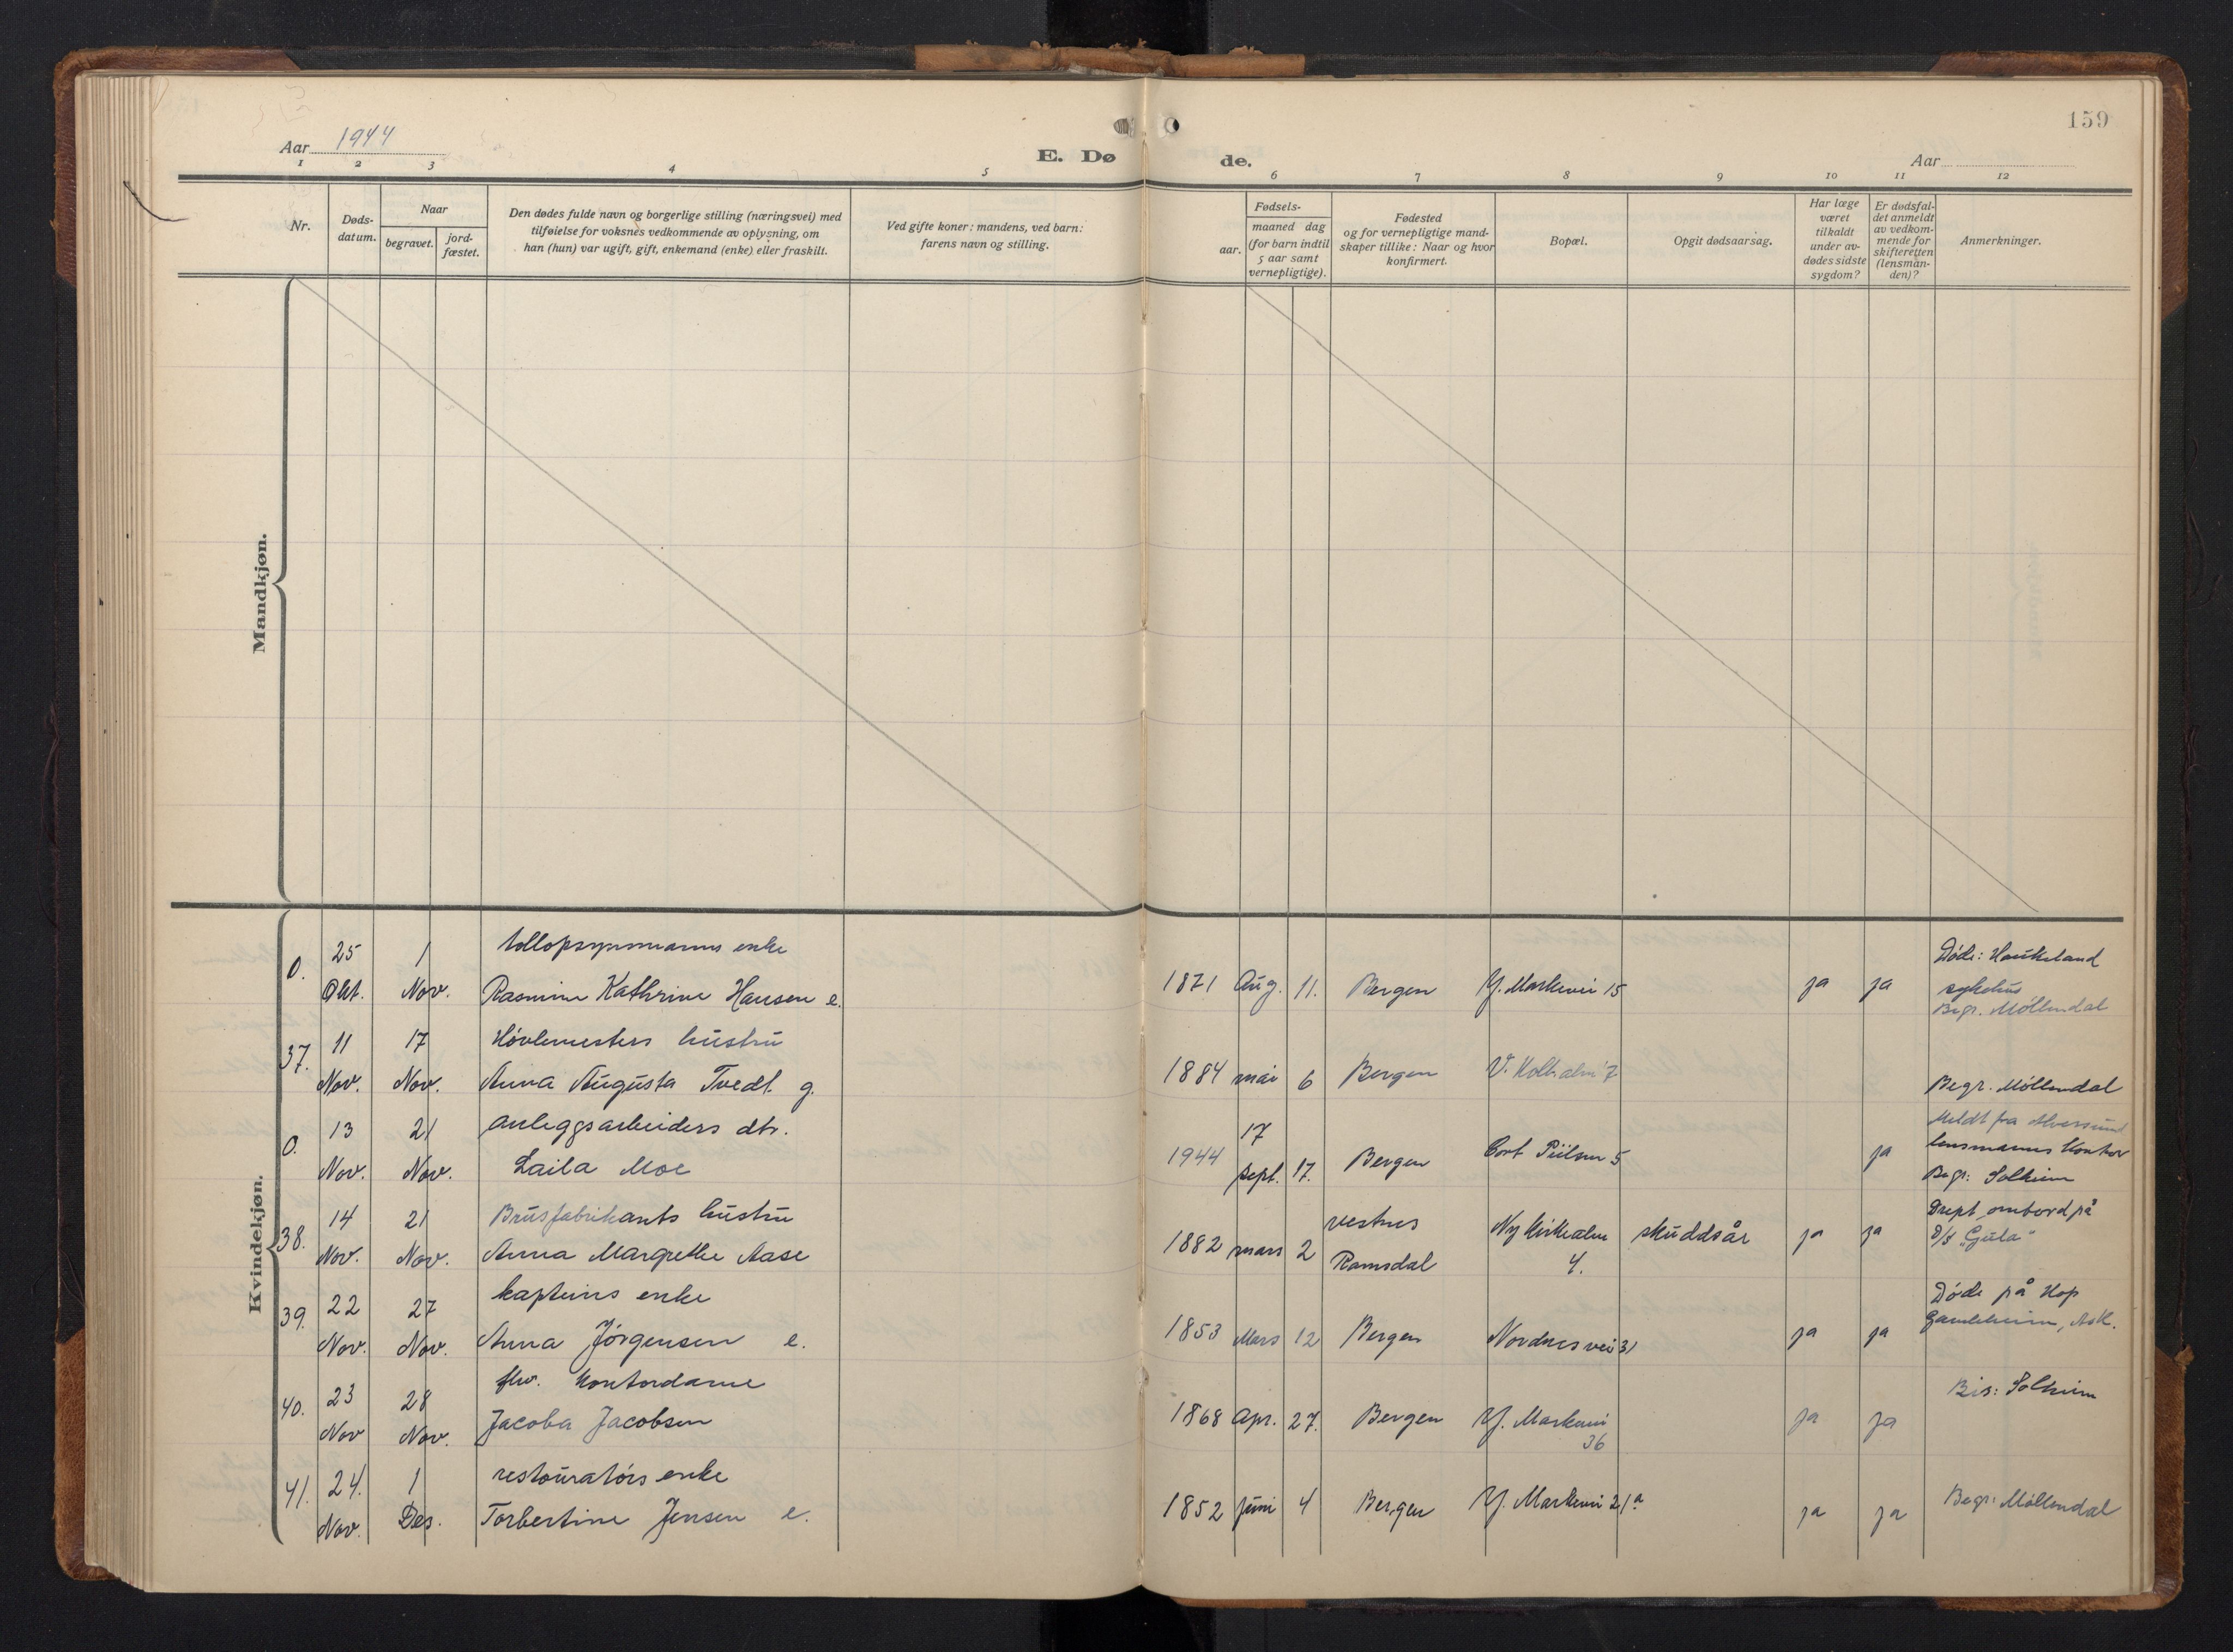 159
Aar 1944
E. Dø de.
Aar
1 2 3 4 5 6 7 8 9 10 11 12
Nr.
Døds-
datum.
Naar
begravet.
jord-
fæstet.
Den dødes fulde navn og borgerlige stilling (næringsvei) med
tilføielse for voksnes vedkommende av oplysning, om
han (hun) var ugift, gift, enkemand (enke) eller fraskilt.
Ved gifte koner: mandens, ved barn:
farens navn og stilling.
Fødsels-
aar.
maaned dag
(for barn indtil
5 aar samt
vernepligtige).
Fødested
og for vernepligtige mand-
skaper tillike: Naar og hvor
konfirmert.
Bopæl.
Opgit dødsaarsag.
Har læge
været
tilkaldt
under av-
dødes sidste
sygdom?
Er dødsfal-
det anmeldt
av vedkom-
mende for
skifteretten
(lensman-
den)?
Anmerkninger.
Mandkjøn.
Kvindekjøn.
25 1 tollopsynsmanns enke Døde: Haukeland
0. Okt. Nov. Rasmine Kathrine Hansen e. 1871 Aug. 11. Bergen Y. Markevei 15 ja ja sykehus
Begr. Möllendal
11 17 Høvlemesters hustru
37. Nov. Nov. Anna Augusta Tvedt g. 1884 mai 6 Bergen V. Holbalm 7 Begr. Möllendal
13 21 anleggsarbeiders dtr. 17 Meldt fra Alversund
0. Nov. Nov. Laila Moe 1944 sept. 17. Bergen Cort Piilsm 5 ja lensmanns kontor
Begr: Solheim
14 21 Brusfabrikants hustru vestnes Drept ombord på
38. Nov. Nov. Anna Margrethe Aase 1882 mars 2 Romsdal Nykirkealm 4. skuddsår ja ja D/S "Gula"
22 27 kapteins enke Døde på Hop
39. Nov. Nov. Anna Jørgensen e. 1853 Mars 12 Bergen Nordnesvei 31 ja ja Gamleheim, Ask.
23 28 fhv. Kontordame Bis: Solheim
40. Nov Nov. Jacoba Jacobsen 1868 Apr. 27. Bergen Y. Markevei 36 ja ja
24. 1 restauratørs enke
41. Nov. Des. Torbertine Jensen e. 1852 juni 4 Bergen Y. Markevei 21a ja ja Begr: Möllendal